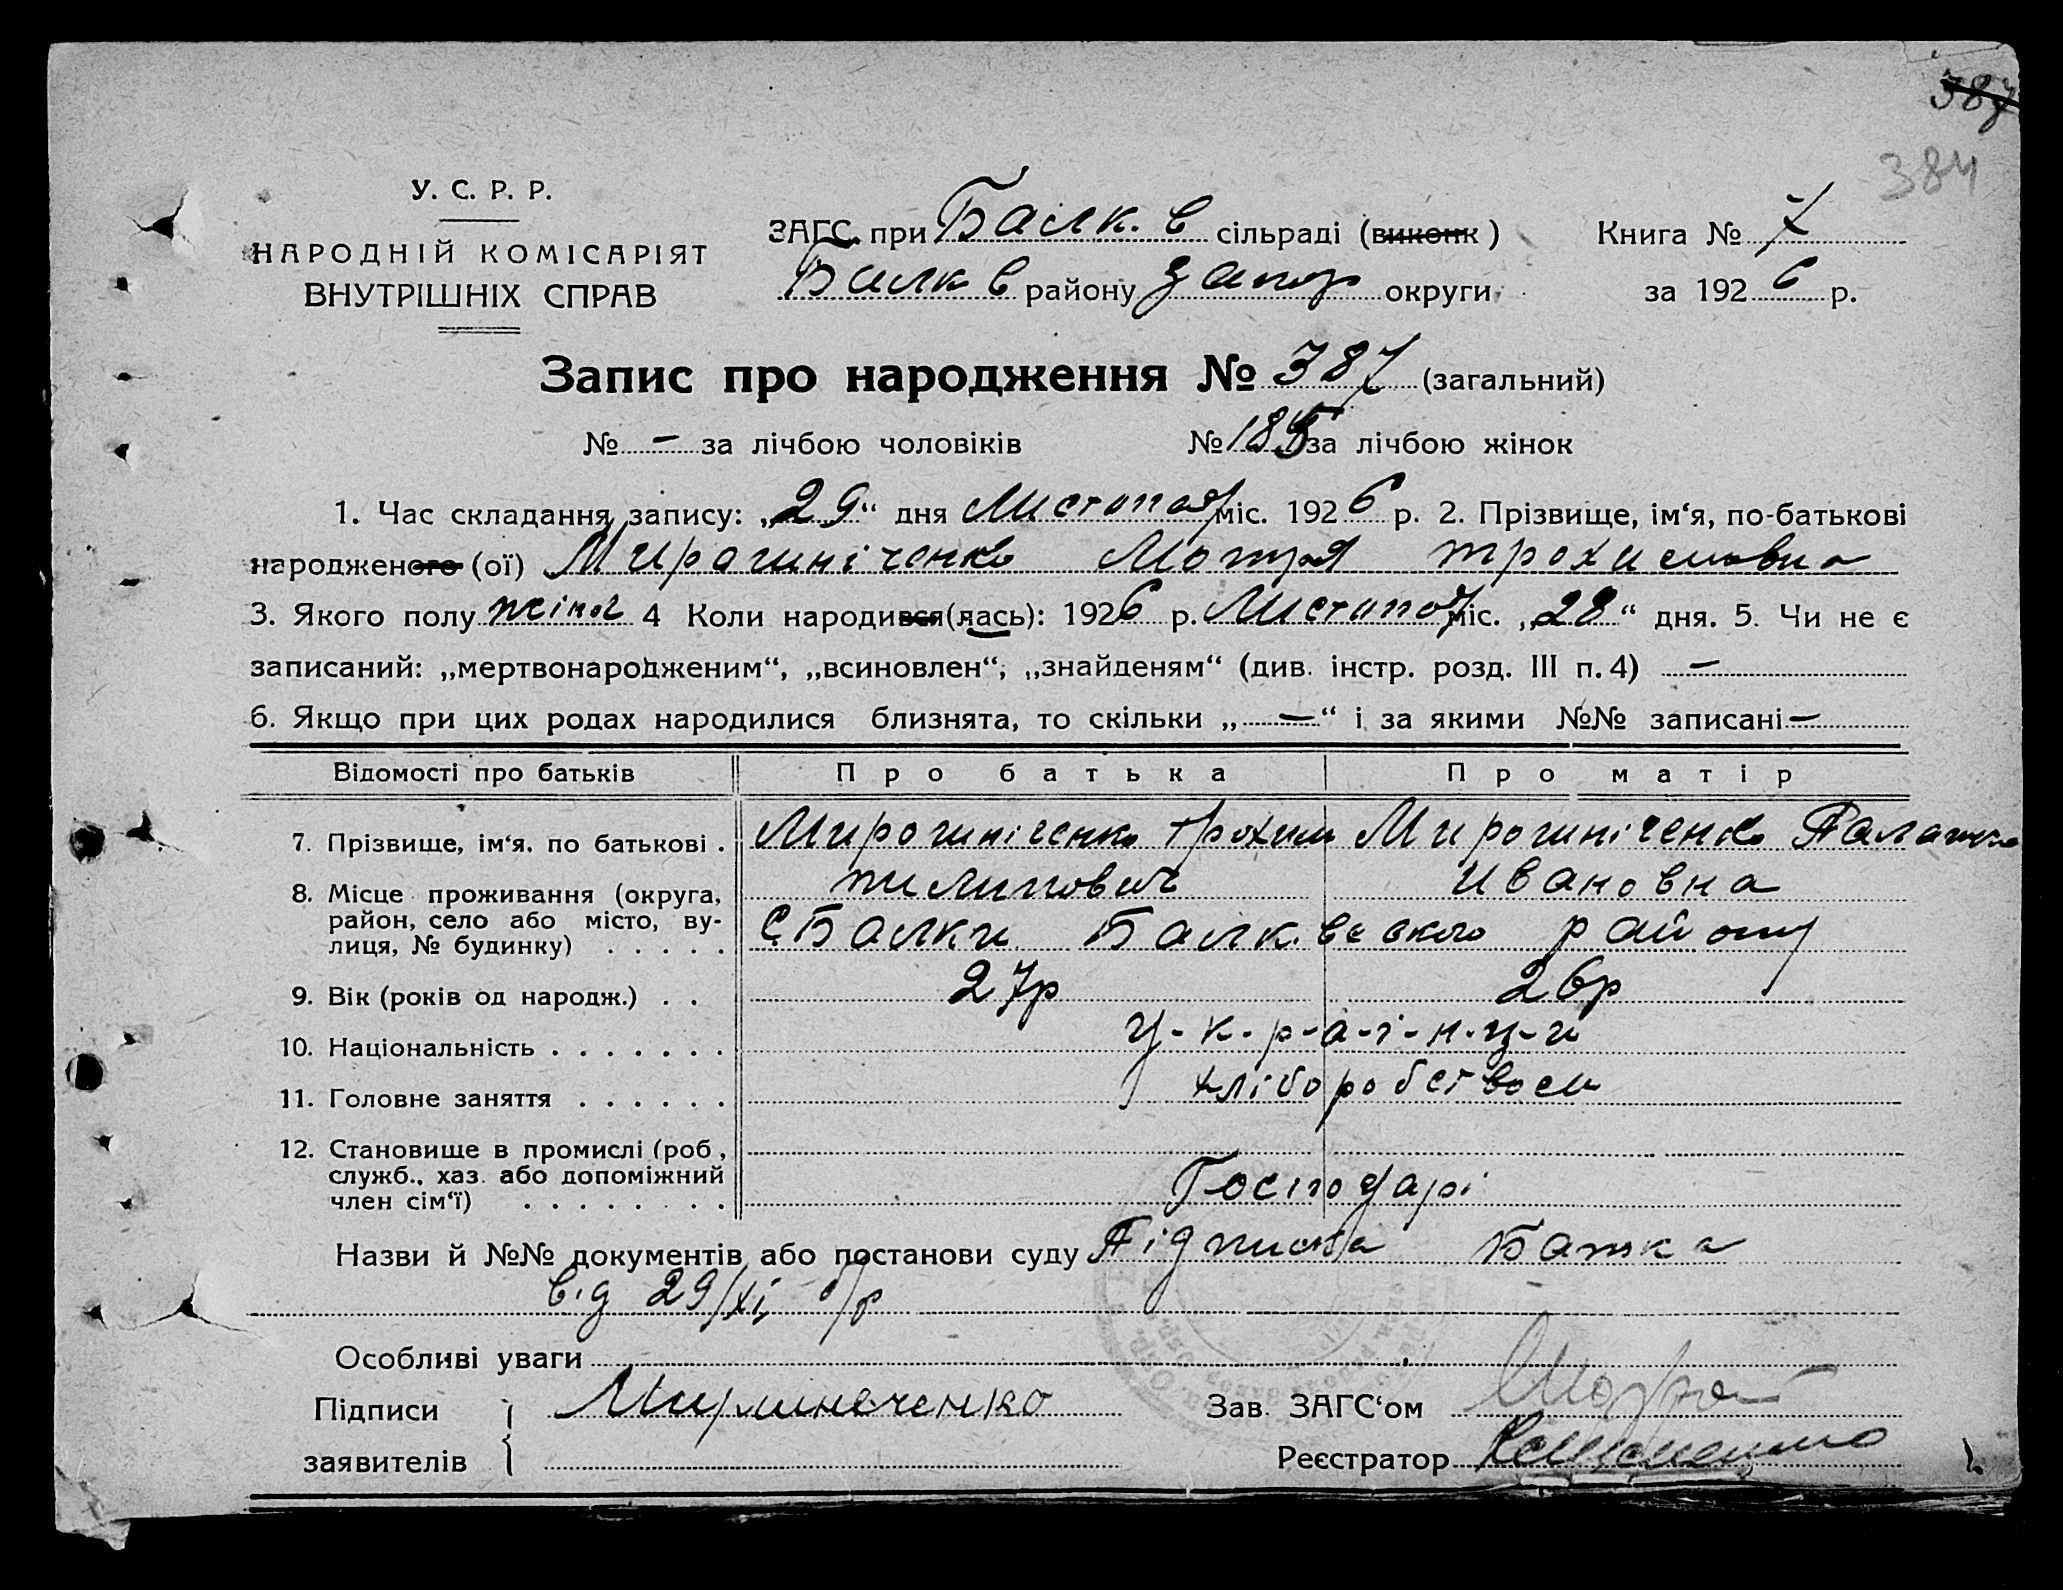 387
384
У. С. Р. Р.
НАРОДНІЙ КОМІСАРІЯТ
ВНУТРІШНІХ СПРАВ
ЗАГС. при Балк. в сільраді (виконк)
Балк в району Запор округи
Книга № 7
за 1926 р.
Запис про народження № 387 (загальний)
№ – за лічбою чоловіків № 185 за лічбою жінок
1. Час складання запису: „29“ дня Листопад міс. 1926 р. 2. Прізвище, ім‘я, по-батькові
народженого (ої) Мирошніченко Мотря Трохимовна
3. Якого полу жіноч 4 Коли народився(лась): 1926 р. Листопад міс. „28“ дня. 5. Чи не є
записаний: „мертвонародженим“, „всиновлен“, „знайденям“ (див. інстр. розд. III п. 4) –
6. Якщо при цих родах народилися близнята, то скільки „–“ і за якими №№ записані –
Відомості про батьків Про батька Про матір
7. Прізвище, ім‘я, по батькові . Мирошніченко Трохим Мирошніченко Палажка
Пилипович Ивановна
8. Місце проживання (округа,
район, село або місто, ву-
лиця, № будинку) . . . . . С Балки Балк. вевкого району
9. Вік (років од народж.) . . 27р 26р
10. Національність . . . . . . . У-к-р-а-ї-н-ц-и
11. Головне заняття . . . . . . хліборобством
12. Становище в промислі (роб,
служб., хаз. або допоміжний
член сім‘ї) . . . . . . . . Господарі
Назви й №№ документів або постанови суду Підписка Батька
від 29/XI б/р
Особливі уваги
Підписи Мирминеченко Зав. ЗАГС‘ом
заявителів Реєстратор